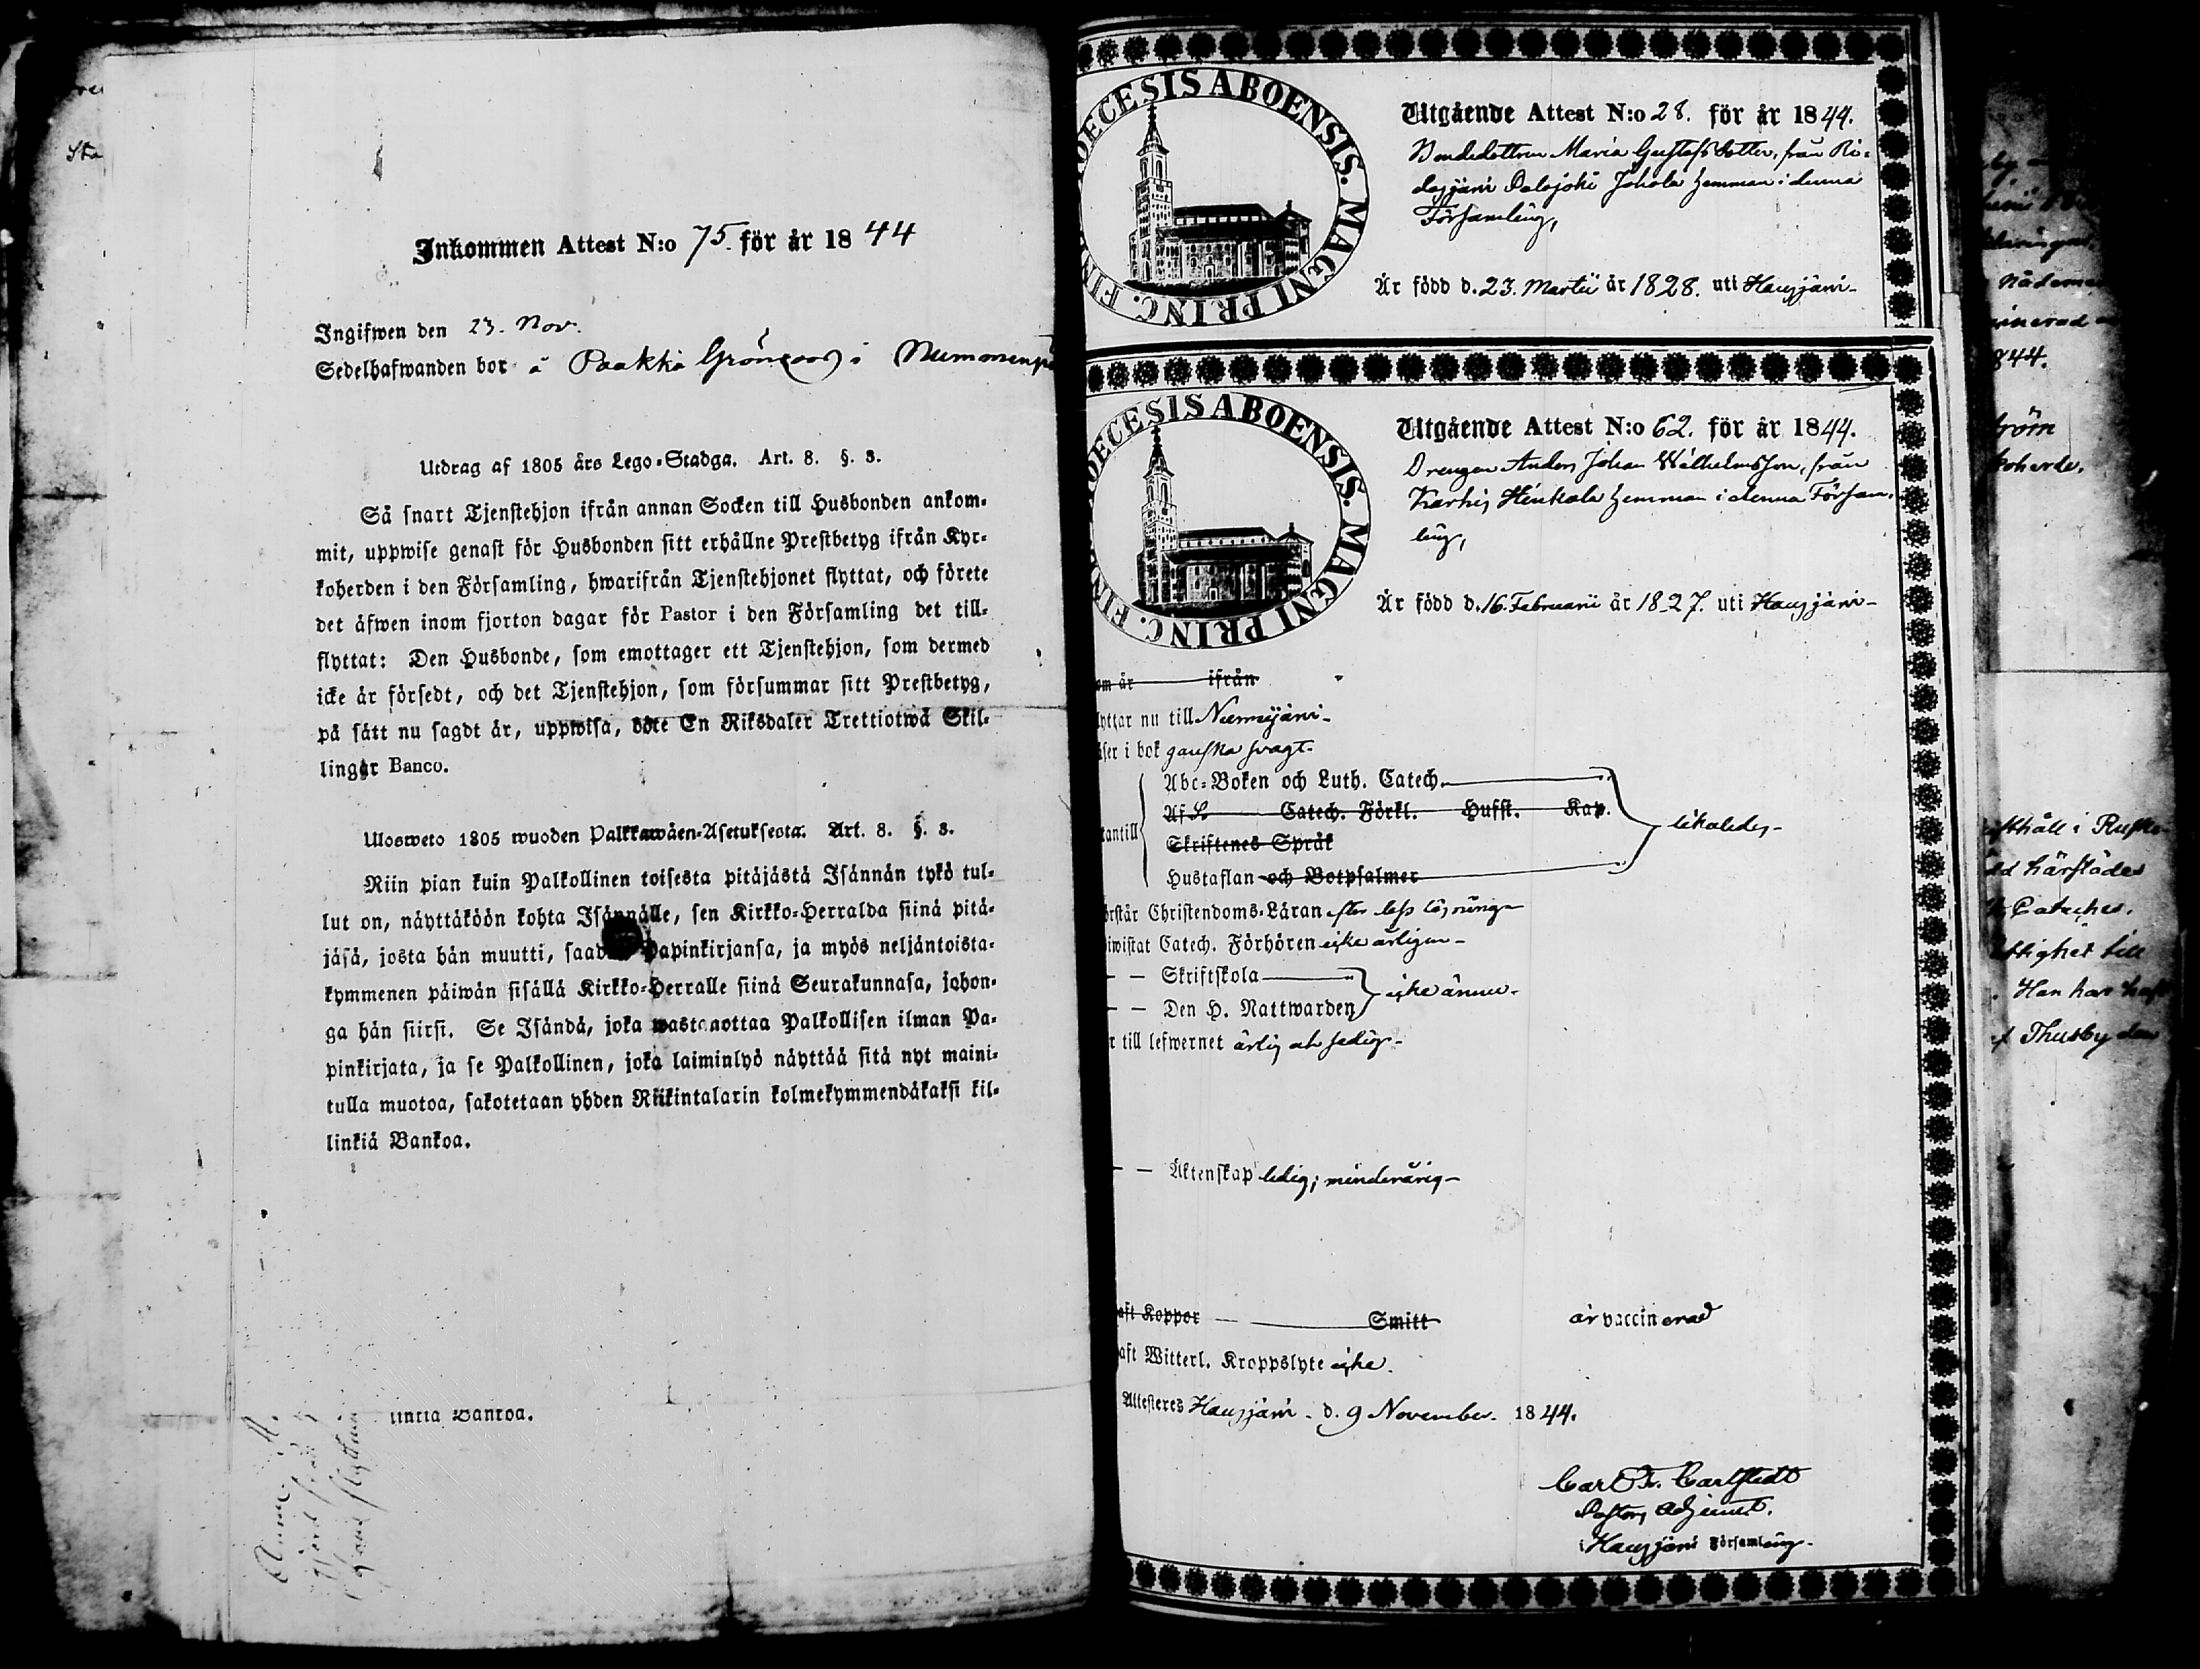 Inkommen Attest N:o 75. för år 1844
Ingifwen den 23. Nov.
Sedelhafwanden bor å Paakki Grönroos i Nummenpä
Utdrag af 1805 års Lego-Stadga. Art. 8. §. 8.
Så snart Tjenstehjon ifrån annan Socken till Husbonden ankom-
mit, uppwise genast för Husbonden sitt erhållne Prestbetyg ifrån Kyr-
koherden i den Församling, hwarifrån Tjenstehjonet flyttat, och förete
det äfwen inom fjorton dagar för Pastor i den Församling det till-
flyttat: Den Husbonde, som emottager ett Tjenstehjon, som dermed
icke är försedt, och det Tjenstehjon, som försummar sitt Prestbetyg,
på sätt nu sagdt är, uppwisa, böte En Riksdaler Trettiotwå Skil-
lingar Banco.
Ulosweto 1805 wuoden Palkkawäen-Asetuksesta. Art. 8. §. 8.
Niin pian kuin Palkollinen toisesta pitäjästä Isännän tykö tul-
lut on, näyttäköön kohta Isännälle, sen Kirkko-Herralda siinä pitä-
jäsä, josta hän muutti, saadun Papinkirjansa, ja myös neljäntoista-
kymmenen päiwän sisällä Kirkko-Herralle siinä Seurakunnasa, johon-
ga hän siirsi. Se Isändä, joka wastanottaa Palkollisen ilman Pa-
pinkirjata, ja se Palkollinen, joka laiminlyö näyttää sitä nyt maini-
tulla muotoa, sakotetaan yhden Riikintalarin kolmekymmendäkaksi kil-
linkiä Bankoa.
linkiä Bankoa.
DECESIS ABOENSIS. MAGNI PRINC. FIN
Utgående Attest N:o 28. för år 1844.
Bondedottren Maria Gustafs dotter, från Ri-
dasjärvi Palojoki Johola hemman i denna
Församling,
Är född d. 23. Martii år 1828. uti Hausjärvi-
DECESIS ABOENSIS. MAGNI PRINC. FIN
Utgående Attest N:o 62. för år 1844.
Drengen Anders Johan Wilhelmsson, från
Karhis Heikola hemman i denna Försam-
ling,
Är född d. 16. Februarii år 1827. uti Hausjärvi-
om är ifrån
lyttar nu till Nurmijärvi-
äser i bok ganska svagt.
tantill
Abc-Boken och Luth. Catech.
Af S. Catech. Förkl. Husst. Kap.
Skriftenes Språk
Hustaflan och Botpsalmer
likaledes-
örstår Christendoms-Läran efter dess läsning-
iwistat Catech. Förhören icke årligen-
- - Skriftskola
- - Den H. Nattwarden
icke ännu.
r till lefwernet ärlig och sedig-
- - Äktenskap ledig; minderårig-
aft Koppor - Smitt är vaccinerad
aft Witterl. Kroppslyte icke.
Attesteres Hausjärvi. d. 9 November. 1844.
Carl Fr. Carlstedt
Pastors Adjunct.
i Hausjärvi Församling.
844.
koherde.
Cateches.
Han har haft
af Thusby den